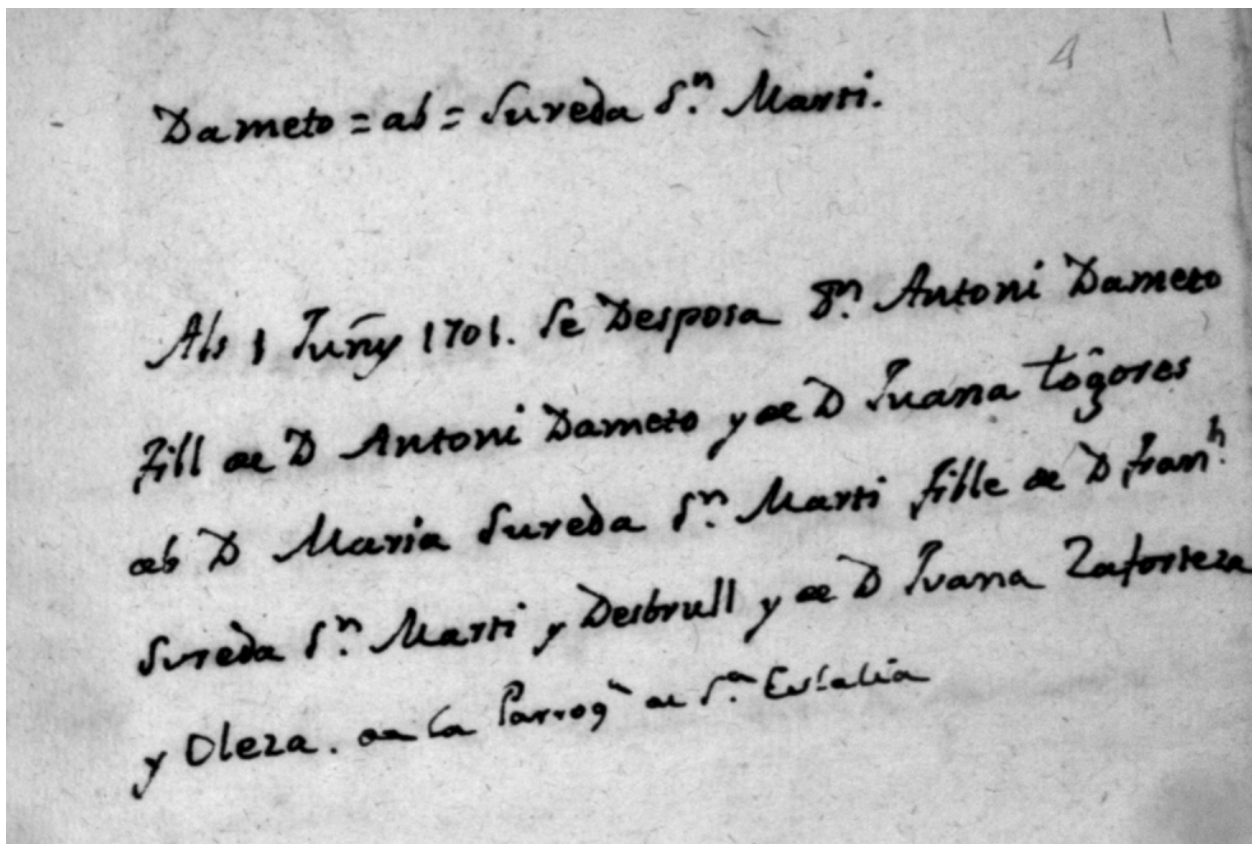 4
Dameto = ab = Sureda S.n Marti.
Als 1 Juñy 1701. Se Desposa D.n Antoni Dameto
fill de D Antoni Dameto y de D Juana Togores
ab D Maria Sureda S.n Marti fille de D Fran.h
Sureda S.n Marti y Desbrull y de D Juana Zaforteza
y Oleza. en la Parroq.a de S.ta Eulalia